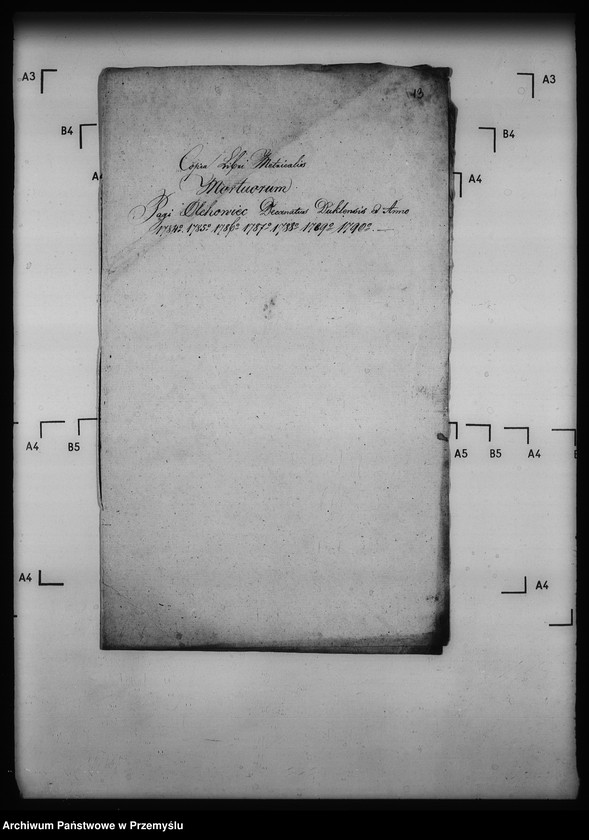 13
Copia Libri Metricalis
Mortuorum
Pagi Olchowiec Decanatus Duklensis ab Anno
1784º 1785º 1786º 1787º 1788º 1789º 1790º
A3
A3
B4
B4
A4
A4
A4
B5
A5
B5
A4
A4
A4
Archiwum Państwowe w Przemyślu